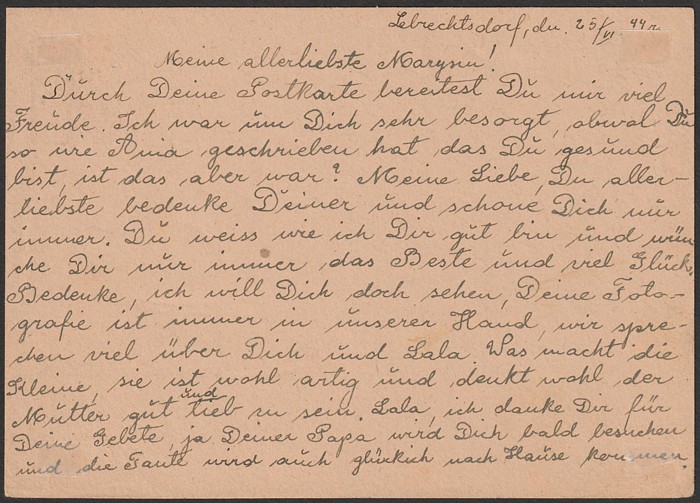 Lebrechtsdorf, den. 25/VI 44 r.
Meine allerliebste Marysiu!
Durch Deine Postkarte bereitest Du mir viel
Freude. Ich war um Dich sehr besorgt, obwal Du
so wie Ania geschrieben hat das Du gesund
bist, ist das aber war? Meine Liebe, Du aller-
liebste bedenke Deiner und schone Dich nur
immer. Du weiss wie ich Dir gut bin und wün
che Dir nur immer das Beste und viel Glück.
Bedenke, ich will Dich doch sehen, Deine Foto-
grafie ist immer in unserer Hand, wir spre-
chen viel über Dich und Lala. Was macht die
Kleine, sie ist wohl artig und denkt wohl der
Mutter gut und lieb zu sein. Lala, ich danke Dir für
Deine Gebete, ja Deiner Papa wird Dich bald besuchen
und die Tante wird auch glückich nach Hause kommen.